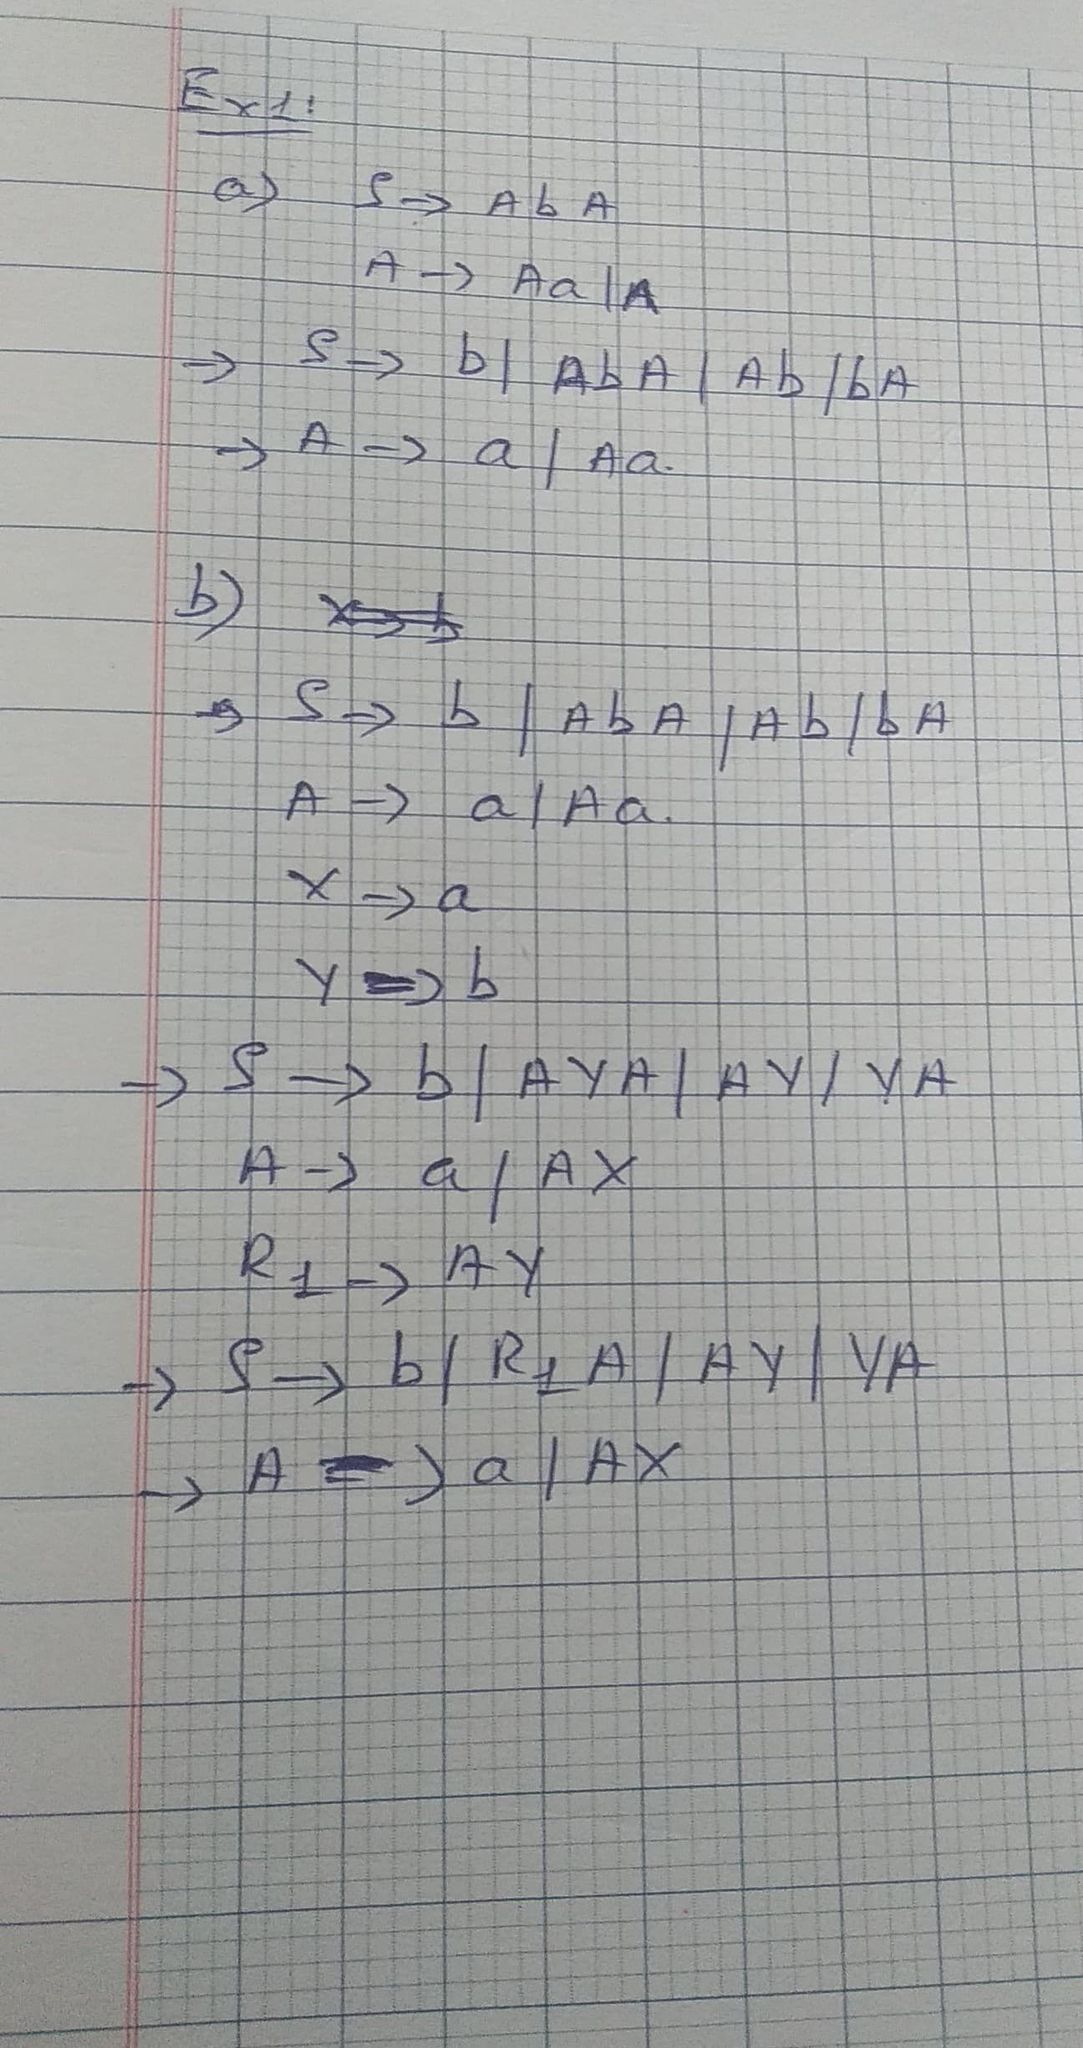 Ex1:
a) S → AbA
A → Aa | A
→ S → b | AbA | Ab | bA
→ A → a | Aa.
b) X → b
→ S → b | AbA | Ab | bA
A → a | Aa.
X → a
Y → b
→ S → b | AYA | AY | YA
A → a | AX
R1 → AY
→ S → b | R1A | AY | YA
→ A → a | AX